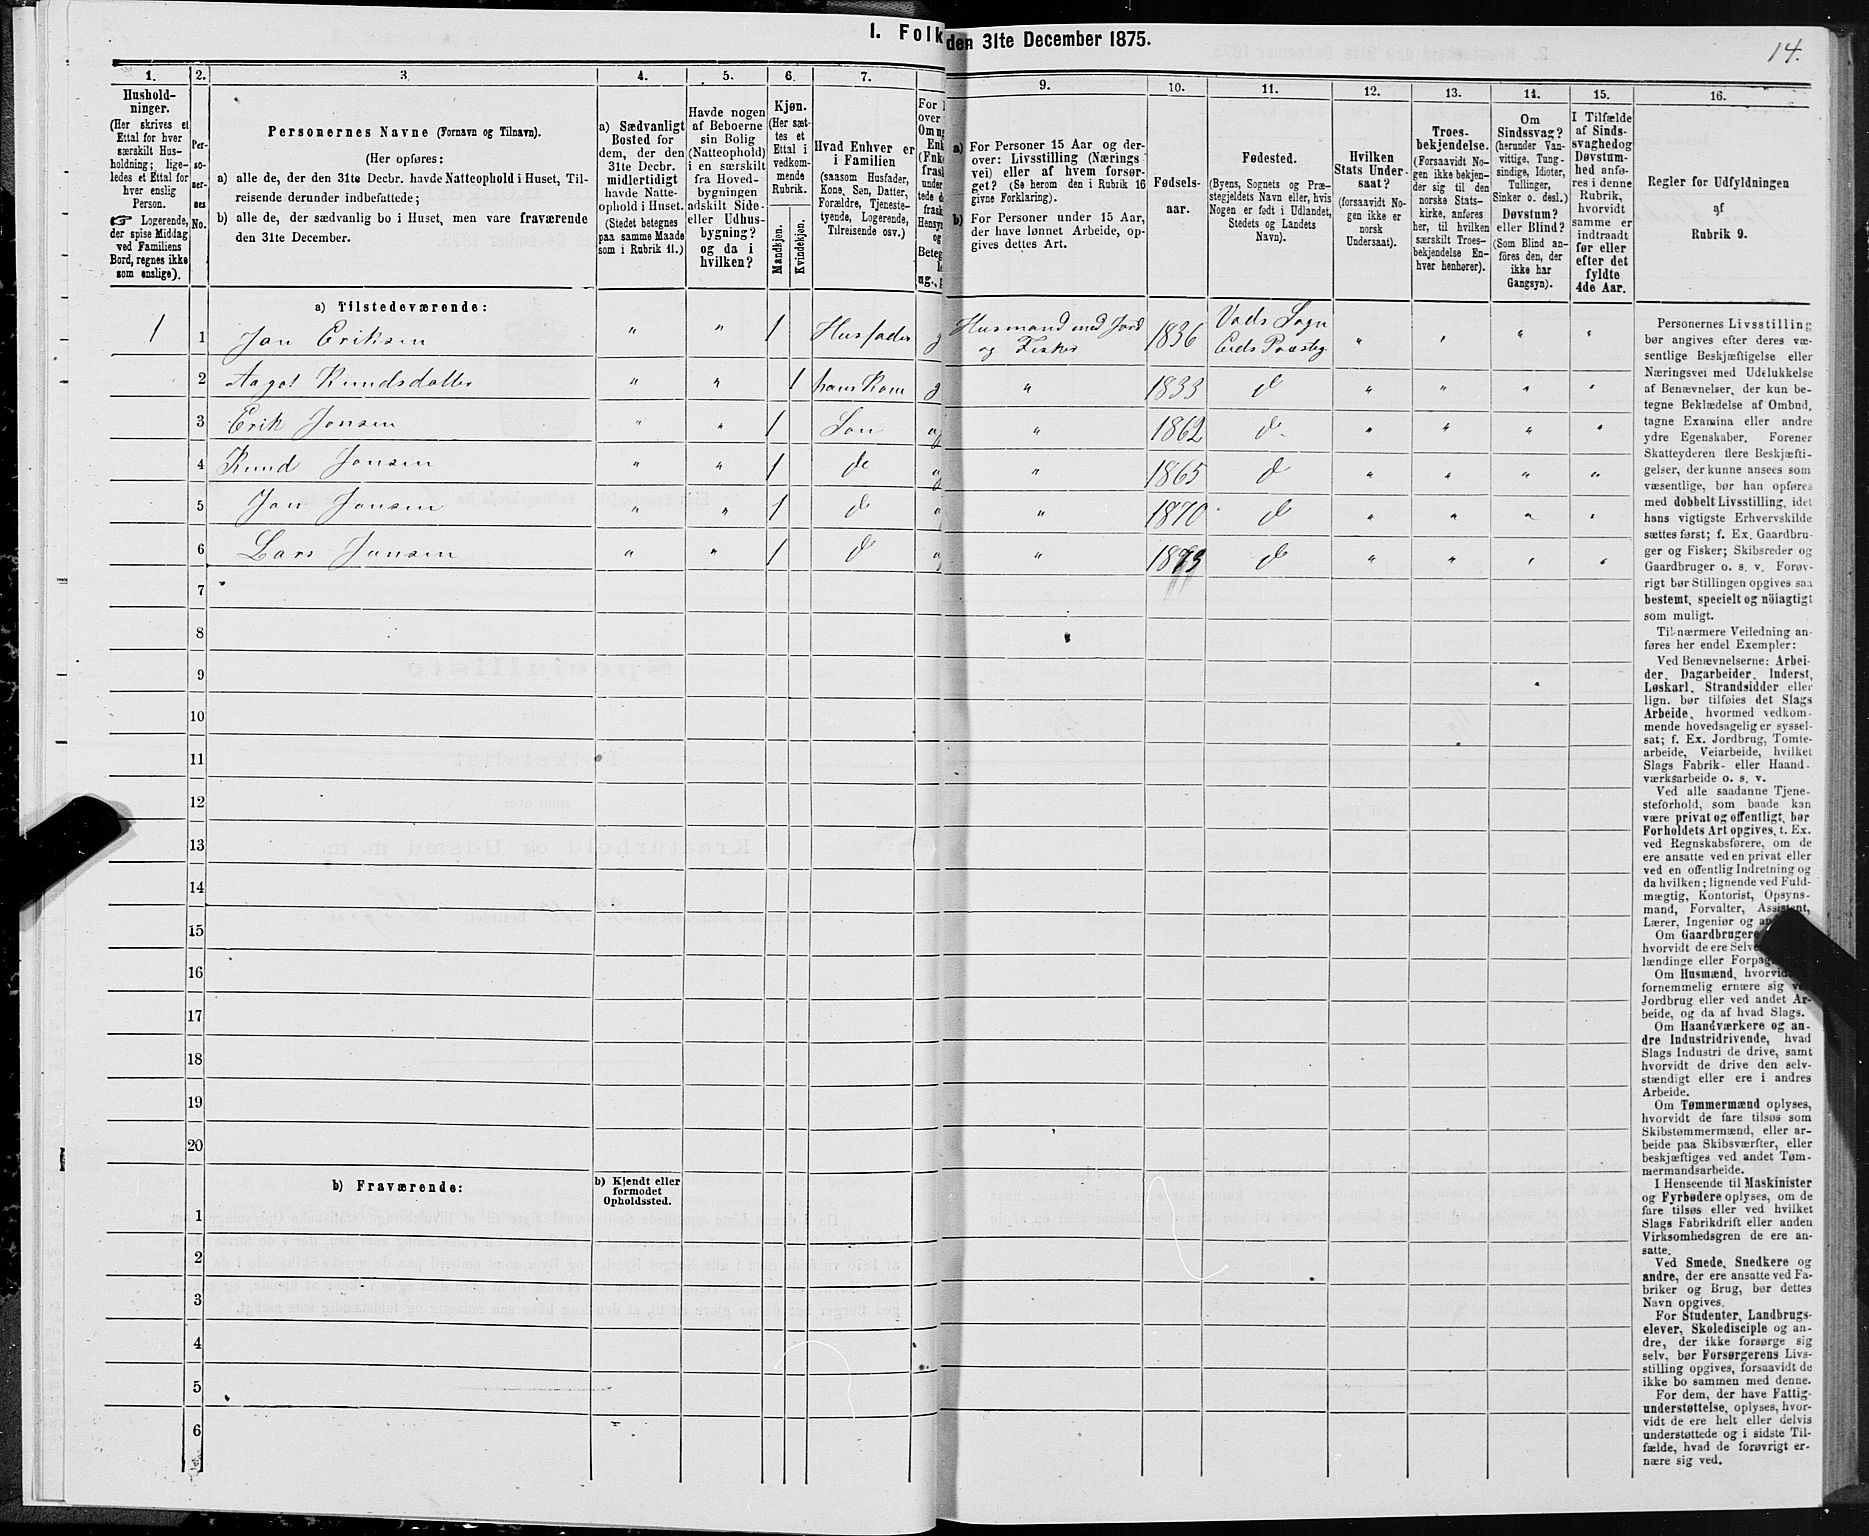 I. Folk
den 31te December 1875.
14.
1.
Hushold-
ninger.
(Her skrives et
Ettal for hver
særskilt Hus-
holdning; lige-
ledes et Ettal for
hver enslig
Person.
☞ Logerende,
der spise Middag
ved Familiens
Bord, regnes ikke
som enslige).
2.
Per-
so-
ner-
nes
No.
3.
Personernes Navne (Fornavn og Tilnavn).
(Her opføres:
a) alle de, der den 31te Decbr. havde Natteophold i Huset, Til-
reisende derunder indbefattede;
b) alle de, der sædvanlig bo i Huset, men vare fraværende
den 31te December.
4.
a) Sædvanligt
Bosted for
dem, der den
31te Decbr.
midlertidigt
havde Natte-
ophold i Huset.
(Stedet betegnes
paa samme Maade
som i Rubrik 11.)
5.
Havde nogen
af Beboerne
sin Bolig
(Natteophold)
i en særskilt
fra Hoved-
bygningen
adskilt Side-
eller Udhus-
bygning?
og da i
hvilken?
6.
Kjøn.
(Her sæt-
tes et
Ettal i
vedkom-
mende
Rubrik.
Mandkjøn.
Kvindekjøn.
7.
Hvad Enhver er
i Familien
(saasom Husfader,
Kone, Søn, Datter,
Forældre, Tjeneste-
tyende, Logerende,
Tilreisende osv.)
For
over
Om
Enk
(Enke
frask
under
tede
frask
Hensyn
og
Beteg
ug.,
9.
a) For Personer 15 Aar og der-
over: Livsstilling (Nærings
vei) eller af hvem forsør-
get? (Se herom den i Rubrik 16
givne Forklaring).
b) For Personer under 15 Aar,
der have lønnet Arbeide, op-
gives dettes Art.
10.
Fødsels-
aar.
11.
Fødested.
(Byens, Sognets og Præ-
stegjeldets Navn eller, hvis
Nogen er født i Udlandet,
Stedets og Landets
Navn).
12.
Hvilken
Stats Under-
saat?
(forsaavidt No-
gen ikke er
norsk
Undersaat).
13.
Troes-
bekjendelse.
(Forsaavidt No-
gen ikke bekjen-
der sig til den
norske Stats-
kirke, anføres
her, til hvilken
særskilt Troes-
bekjendelse En-
hver henhører).
14.
Om
Sindssvag?
(herunder Van-
vittige, Tung-
sindige, Idioter,
Tullinger,
Sinker o. desl.)
Døvstum?
eller Blind?
(Som Blind an-
føres den, der
ikke har
Gangsyn).
15.
I Tilfælde
af Sinds-
svaghed og
Døvstum-
hed anfø-
res i denne
Rubrik,
hvorvidt
samme er
indtraadt
før eller
efter det
fyldte
4de Aar.
16.
Regler for Udfyldningen
af
Rubrik 9.
a) Tilstedeværende:
1 1 Jon Eriksen " " 1 Husfader g Husmand med Jord og Fisker 1836 Vads Sogn Eids Præsteg. " " " "
2 Aagot Knudsdatter " " 1 hans Kone g " 1833 do " " " "
3 Erik Jonsen " " 1 Søn ug " 1862 do " " " "
4 Knud Jonsen " " 1 do ug " 1865 do " " " "
5 Jon Jonsen " " 1 do ug " 1870 do " " " "
6 Lars Jonsen " " 1 do ug " 1873 do " " " "
7
8
9
10
11
12
13
14
15
16
17
18
19
20
b) Fraværende:
b) Kjendt eller
formodet
Opholdssted.
1
2
3
4
5
6
Personernes Livsstilling
bør angives efter deres væ-
sentlige Beskjæftigelse eller
Næringsvei med Udelukkelse
af Benævnelser, der kun be-
tegne Beklædelse af Ombud,
tagne Examina eller andre
ydre Egenskaber. Forener
Skatteyderen flere Beskjæfti-
gelser, der kunne ansees som
væsentlige, bør han opføres
med dobbelt Livsstilling, idet
hans vigtigste Erhvervskilde
sættes først; f. Ex. Gaardbru-
ger og Fisker; Skibsreder og
Gaardbruger o. s. v. Forøv-
rigt bør Stillingen opgives saa
bestemt, specielt og nöiagtigt
som muligt.
Til nærmere Veiledning an-
føres her endel Exempler:
Ved Benævnelserne: Arbei-
der, Dagarbeider, Inderst,
Løskarl, Strandsidder eller
lign. bør tilføies det Slags
Arbeide, hvormed vedkom-
mende hovedsagelig er syssel-
sat; f. Ex. Jordbrug, Tomte-
arbeide, Veiarbeide, hvilket
Slags Fabrik- eller Haand-
værksarbeide o. s. v.
Ved alle saadanne Tjene-
steforhold, som baade kan
være privat og offentligt, bør
Forholdets Art opgives, t. Ex.
ved Regnskabsførere, om de
ere ansatte ved en privat eller
ved en offentlig Indretning og
da hvilken; lignende ved Fuld-
mægtig, Kontorist, Opsyns-
mand, Forvalter, Assistent,
Lærer, Ingeniør og
Om Gaardbrugere
hvorvidt de ere Selve
lændinge eller Forpag
Om Husmænd, hvorvid
fornemmelig ernære sig ved
Jordbrug eller ved andet Ar-
beide, og da af hvad Slags.
Om Haandværkere og an-
dre Industridrivende, hvad
Slags Industri de drive, samt
hvorvidt de drive den selv-
stændigt eller ere i andres
Arbeide.
Om Tømmermænd oplyses,
hvorvidt de fare tilsøs som
Skibstømmermænd, eller ar-
beide paa Skibsværfter, eller
beskjæftiges ved andet Tøm-
mermandsarbeide.
I Henseende til Maskinister
og Fyrbødere oplyses, om de
fare tilsøs eller ved hvilket
Slags Fabrikdrift eller anden
Virksomhedsgren de ere an-
satte.
Ved Smede, Snedkere og
andre, der ere ansatte ved Fa-
briker og Brug, bør dettes
Navn opgives.
For Studenter, Landbrugs-
elever, Skoledisciple og an-
dre, der ikke forsørge sig
selv, bør Forsørgerens Livs-
stilling opgives, forsaavidt de
ikke bo sammen med denne.
For dem, der have Fattig-
understøttelse, oplyses, hvor-
vidt de ere helt eller delvis
understøttede og i sidste Til-
fælde, hvad de forøvrigt er-
nære sig ved.